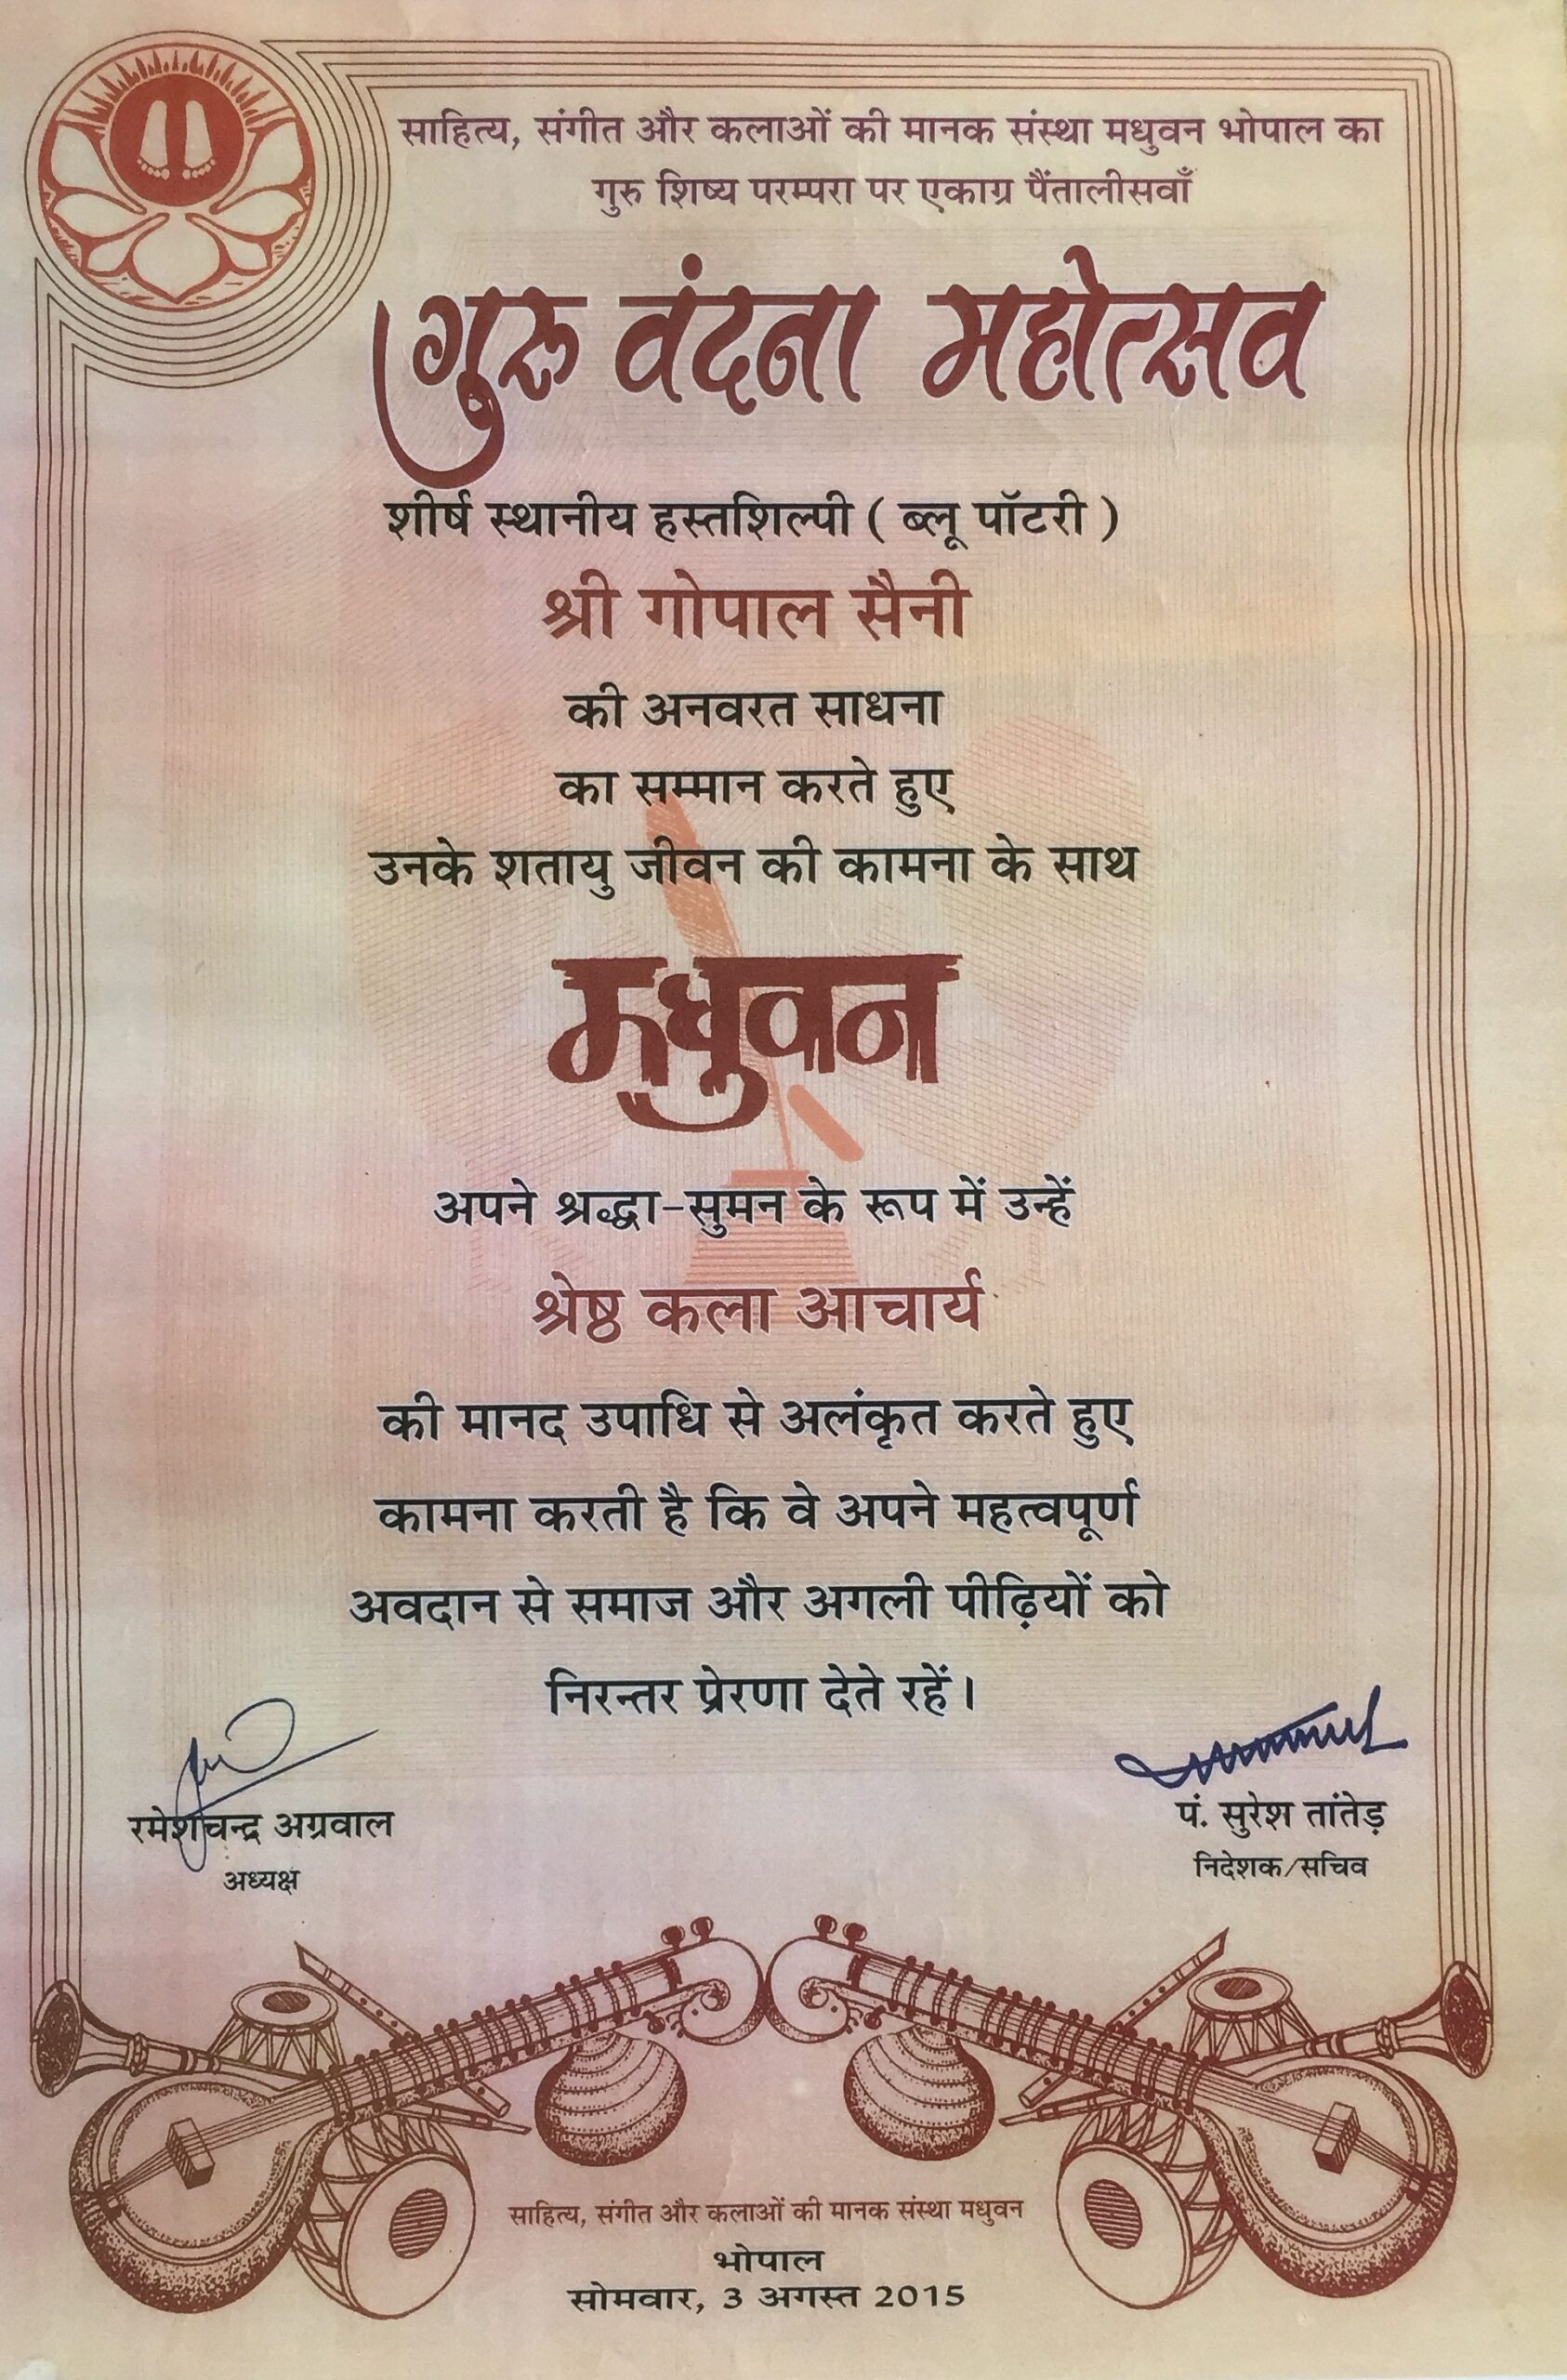 साहित्य, संगीत और कलाओं की मानक संस्था मधुवन भोपाल का
गुरु शिष्य परम्परा पर एकाग्र पैंतालीसवाँ
गुरु वंदना महोत्सव
शीर्ष स्थानीय हस्तशिल्पी ( ब्लू पॉटरी )
श्री गोपाल सैनी
की अनवरत साधना
का सम्मान करते हुए
उनके शतायु जीवन की कामना के साथ
मधुवन
अपने श्रद्धा-सुमन के रूप में उन्हें
श्रेष्ठ कला आचार्य
की मानद उपाधि से अलंकृत करते हुए
कामना करती है कि वे अपने महत्वपूर्ण
अवदान से समाज और अगली पीढ़ियों को
निरन्तर प्रेरणा देते रहें।
रमेशचन्द्र अग्रवाल
अध्यक्ष
पं. सुरेश तांतेड़
निदेशक/सचिव
साहित्य, संगीत और कलाओं की मानक संस्था मधुवन
भोपाल
सोमवार, 3 अगस्त 2015